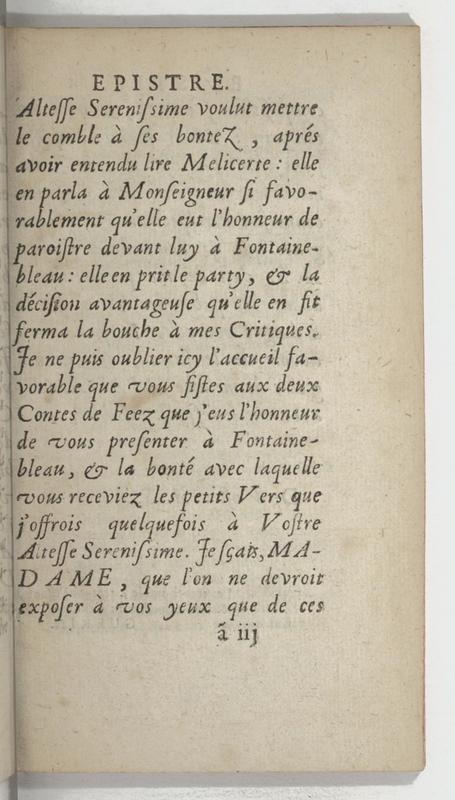 EPISTRE.
Alteſſe Sereniſsime voulut mettre
le comble à ſes bontez, aprés
avoir entendu lire Melicerte : elle
en parla à Monſeigneur ſi favo-
rablement qu'elle eut l'honneur de
paroiſtre devant luy à Fontaine-
bleau : elle en prit le party, & la
déciſion avantageuſe qu'elle en fit
ferma la bouche à mes Critiques.
Je ne puis oublier icy l'accueil fa-
vorable que vous fiſtes aux deux
Contes de Feez que j'eus l'honneur
de vous preſenter à Fontaine-
bleau, & la bonté avec laquelle
vous receviez les petits Vers que
j'offrois quelquefois à Voſtre
Alteſſe Sereniſsime. Je ſçais, MA-
DAME, que l'on ne devroit
expoſer à vos yeux que de ces
ã iij